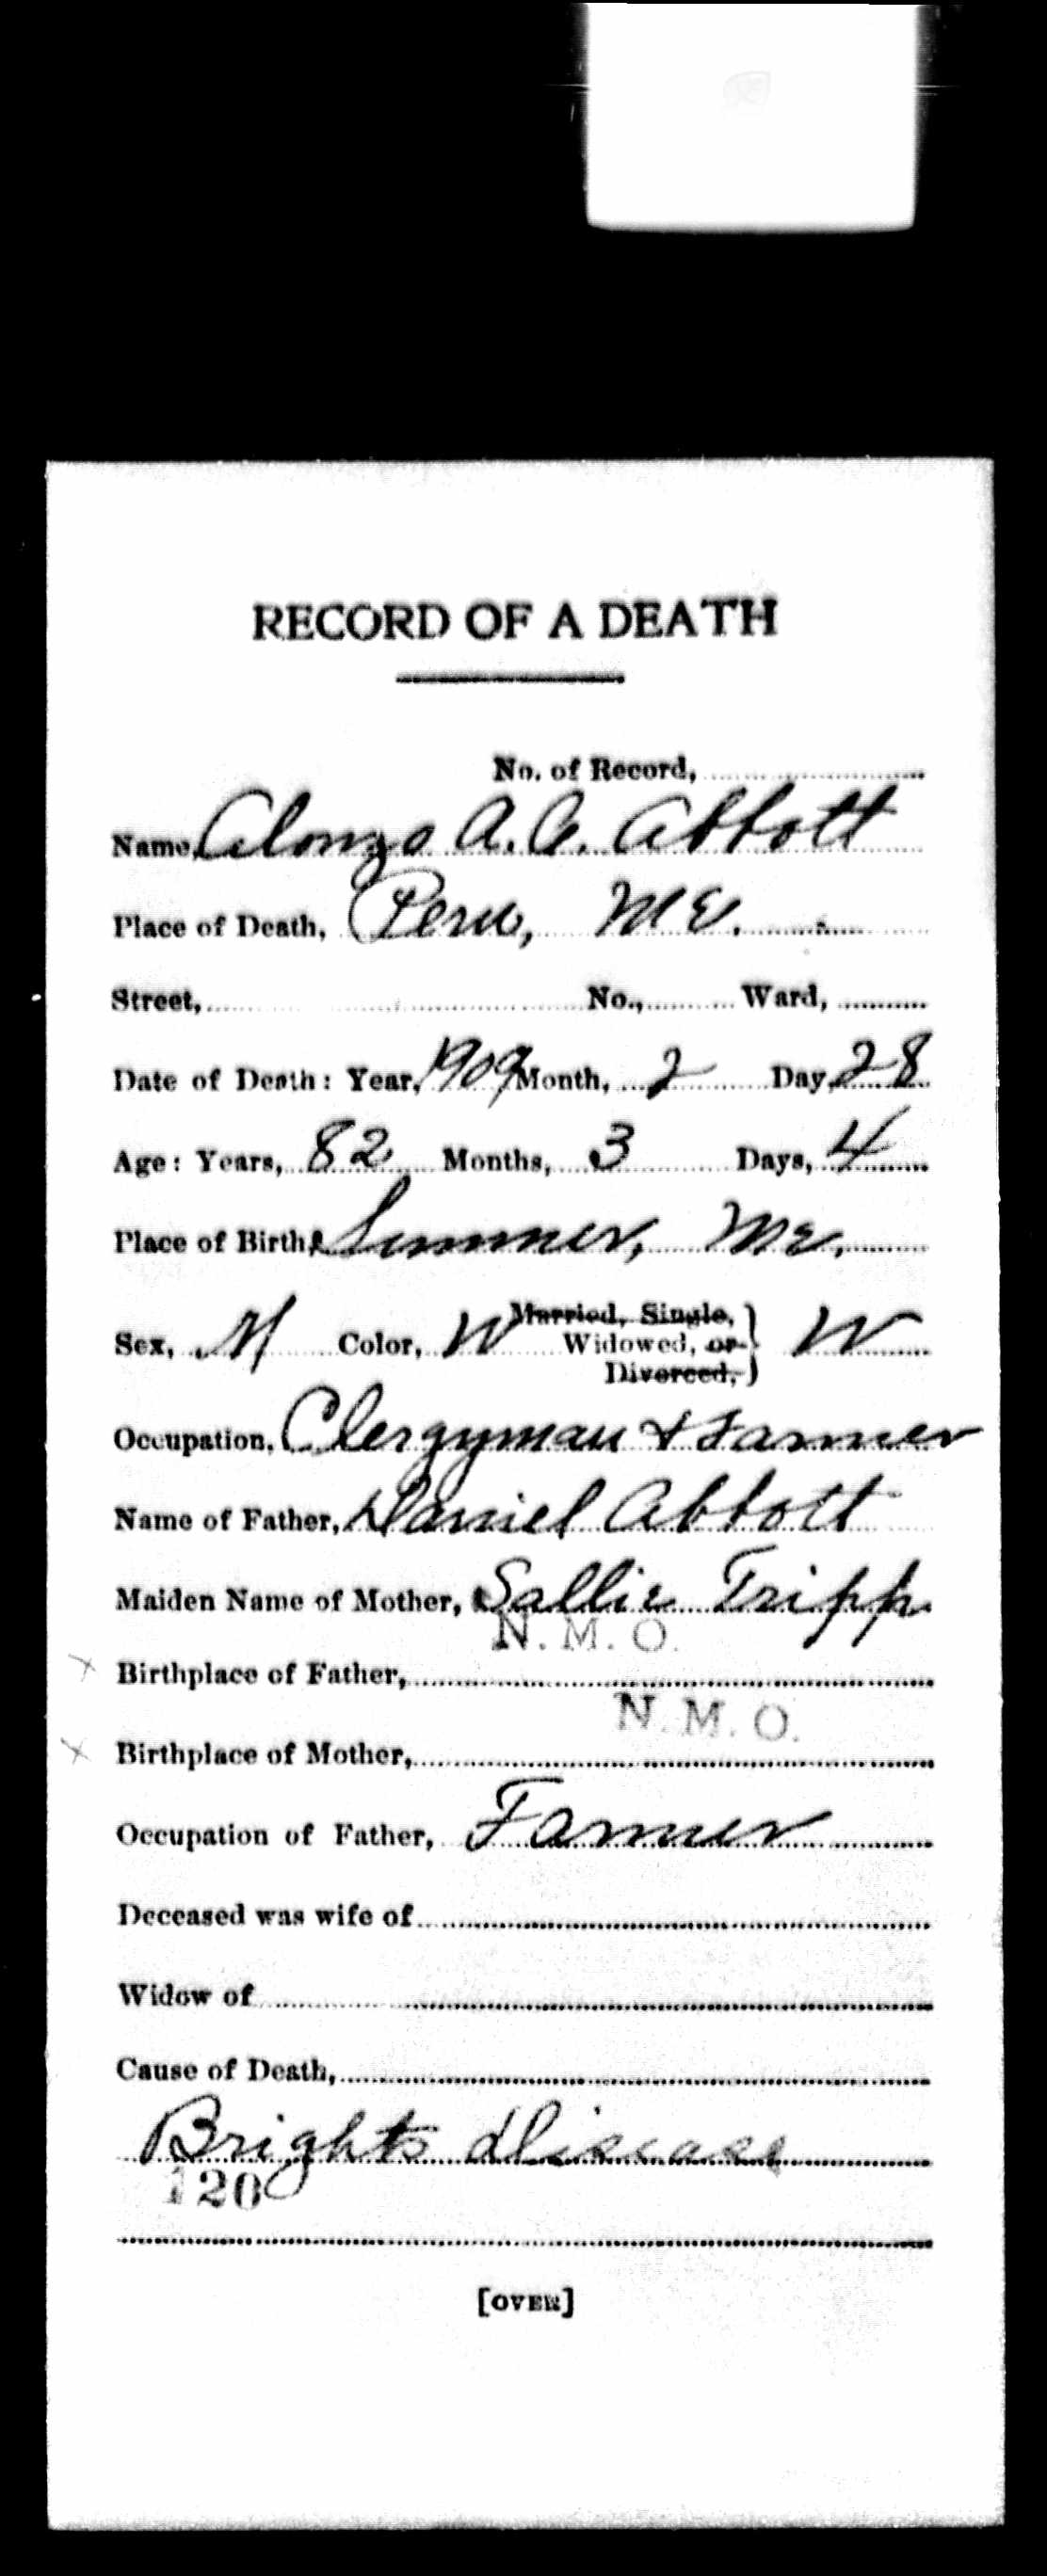 RECORD OF A DEATH
No. of Record,
Name, Alonzo A. Abbott
Place of Death, Peru, Me.
Street, No., Ward,
Date of Death: Year, 1909 Month, 2 Day, 28
Age: Years, 82 Months, 3 Days, 4
Place of Birth, Sumner, Me.
Sex, M Color, W Married, Single, Widowed, or Divorced, W
Occupation, Clergyman & Farmer
Name of Father, Daniel Abbott
Maiden Name of Mother, Sallie Tripp
N. M. O.
Birthplace of Father,
N. M. O.
Birthplace of Mother,
Occupation of Father, Farmer
Deceased was wife of
Widow of
Cause of Death,
Brights disease
120
[OVER]